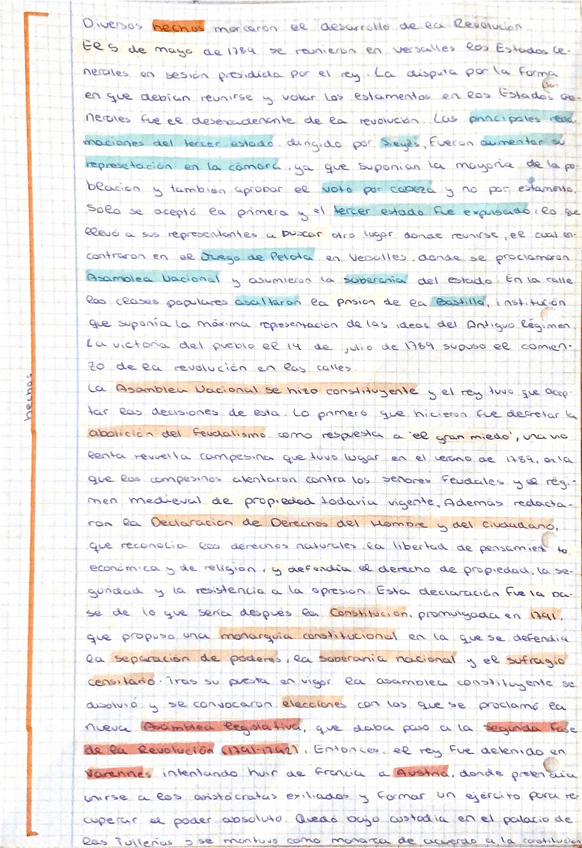 Diversos hechos marcaron el desarrollo de la Revolución.
El 5 de mayo de 1789 se reunieron en Versalles los Estados Ge-
nerales en sesión presidida por el rey. La disputa por la forma
en que debían reunirse y votar los estamentos en los Estados Ge-
nerales fue el desencadenante de la revolución. Las principales recla
maciones del tercer estado, dirigido por Sieyès, fueron aumentar su
representación en la cámara, ya que suponían la mayoría de la po
blación y también aprobar el voto por cabeza y no por estamento.
Solo se aceptó la primera y el tercer estado fue expulsado, lo que
llevó a sus representantes a buscar otro lugar donde reunirse, el cual en-
contraron en el Juego de Pelota en Versalles, donde se proclamaron
Asamblea Nacional y asumieron la soberanía del estado. En la calle
las clases populares asaltaron la prisión de la Bastilla, institución
que suponía la máxima representación de las ideas del Antiguo Régimen.
La victoria del pueblo el 14 de julio de 1789 supuso el comien-
zo de la revolución en las calles.
La Asamblea Nacional se hizo constituyente y el rey tuvo que acep-
tar las decisiones de esta. Lo primero que hicieron fue decretar la
abolición del feudalismo como respuesta a 'el gran miedo', una vio
lenta revuelta campesina que tuvo lugar en el verano de 1789, en la
que los campesinos atentaron contra los señores feudales y el régi-
men medieval de propiedad todavía vigente. Además redacta-
ron la Declaración de Derechos del Hombre y del Ciudadano,
que reconocía los derechos naturales, la libertad de pensamiento
económica y de religión, y defendía el derecho de propiedad, la se-
guridad y la resistencia a la opresión. Esta declaración fue la ba-
se de lo que sería después la Constitución, promulgada en 1791,
que propuso una monarquía constitucional en la que se defendía
la separación de poderes, la soberanía nacional y el sufragio
censitario. Tras su puesta en vigor la asamblea constituyente se
disolvió y se convocaron elecciones con las que se proclamó la
nueva Asamblea legislativa, que daba paso a la segunda fase
de la Revolución (1791-1792). Entonces, el rey fue detenido en
Varennes intentando huir de Francia a Austria, donde pretendía
unirse a los aristócratas exiliados y formar un ejército para re
cuperar el poder absoluto. Quedó bajo custodia en el palacio de
las Tullerías y se mantuvo como monarca de acuerdo a la constitución
hechos